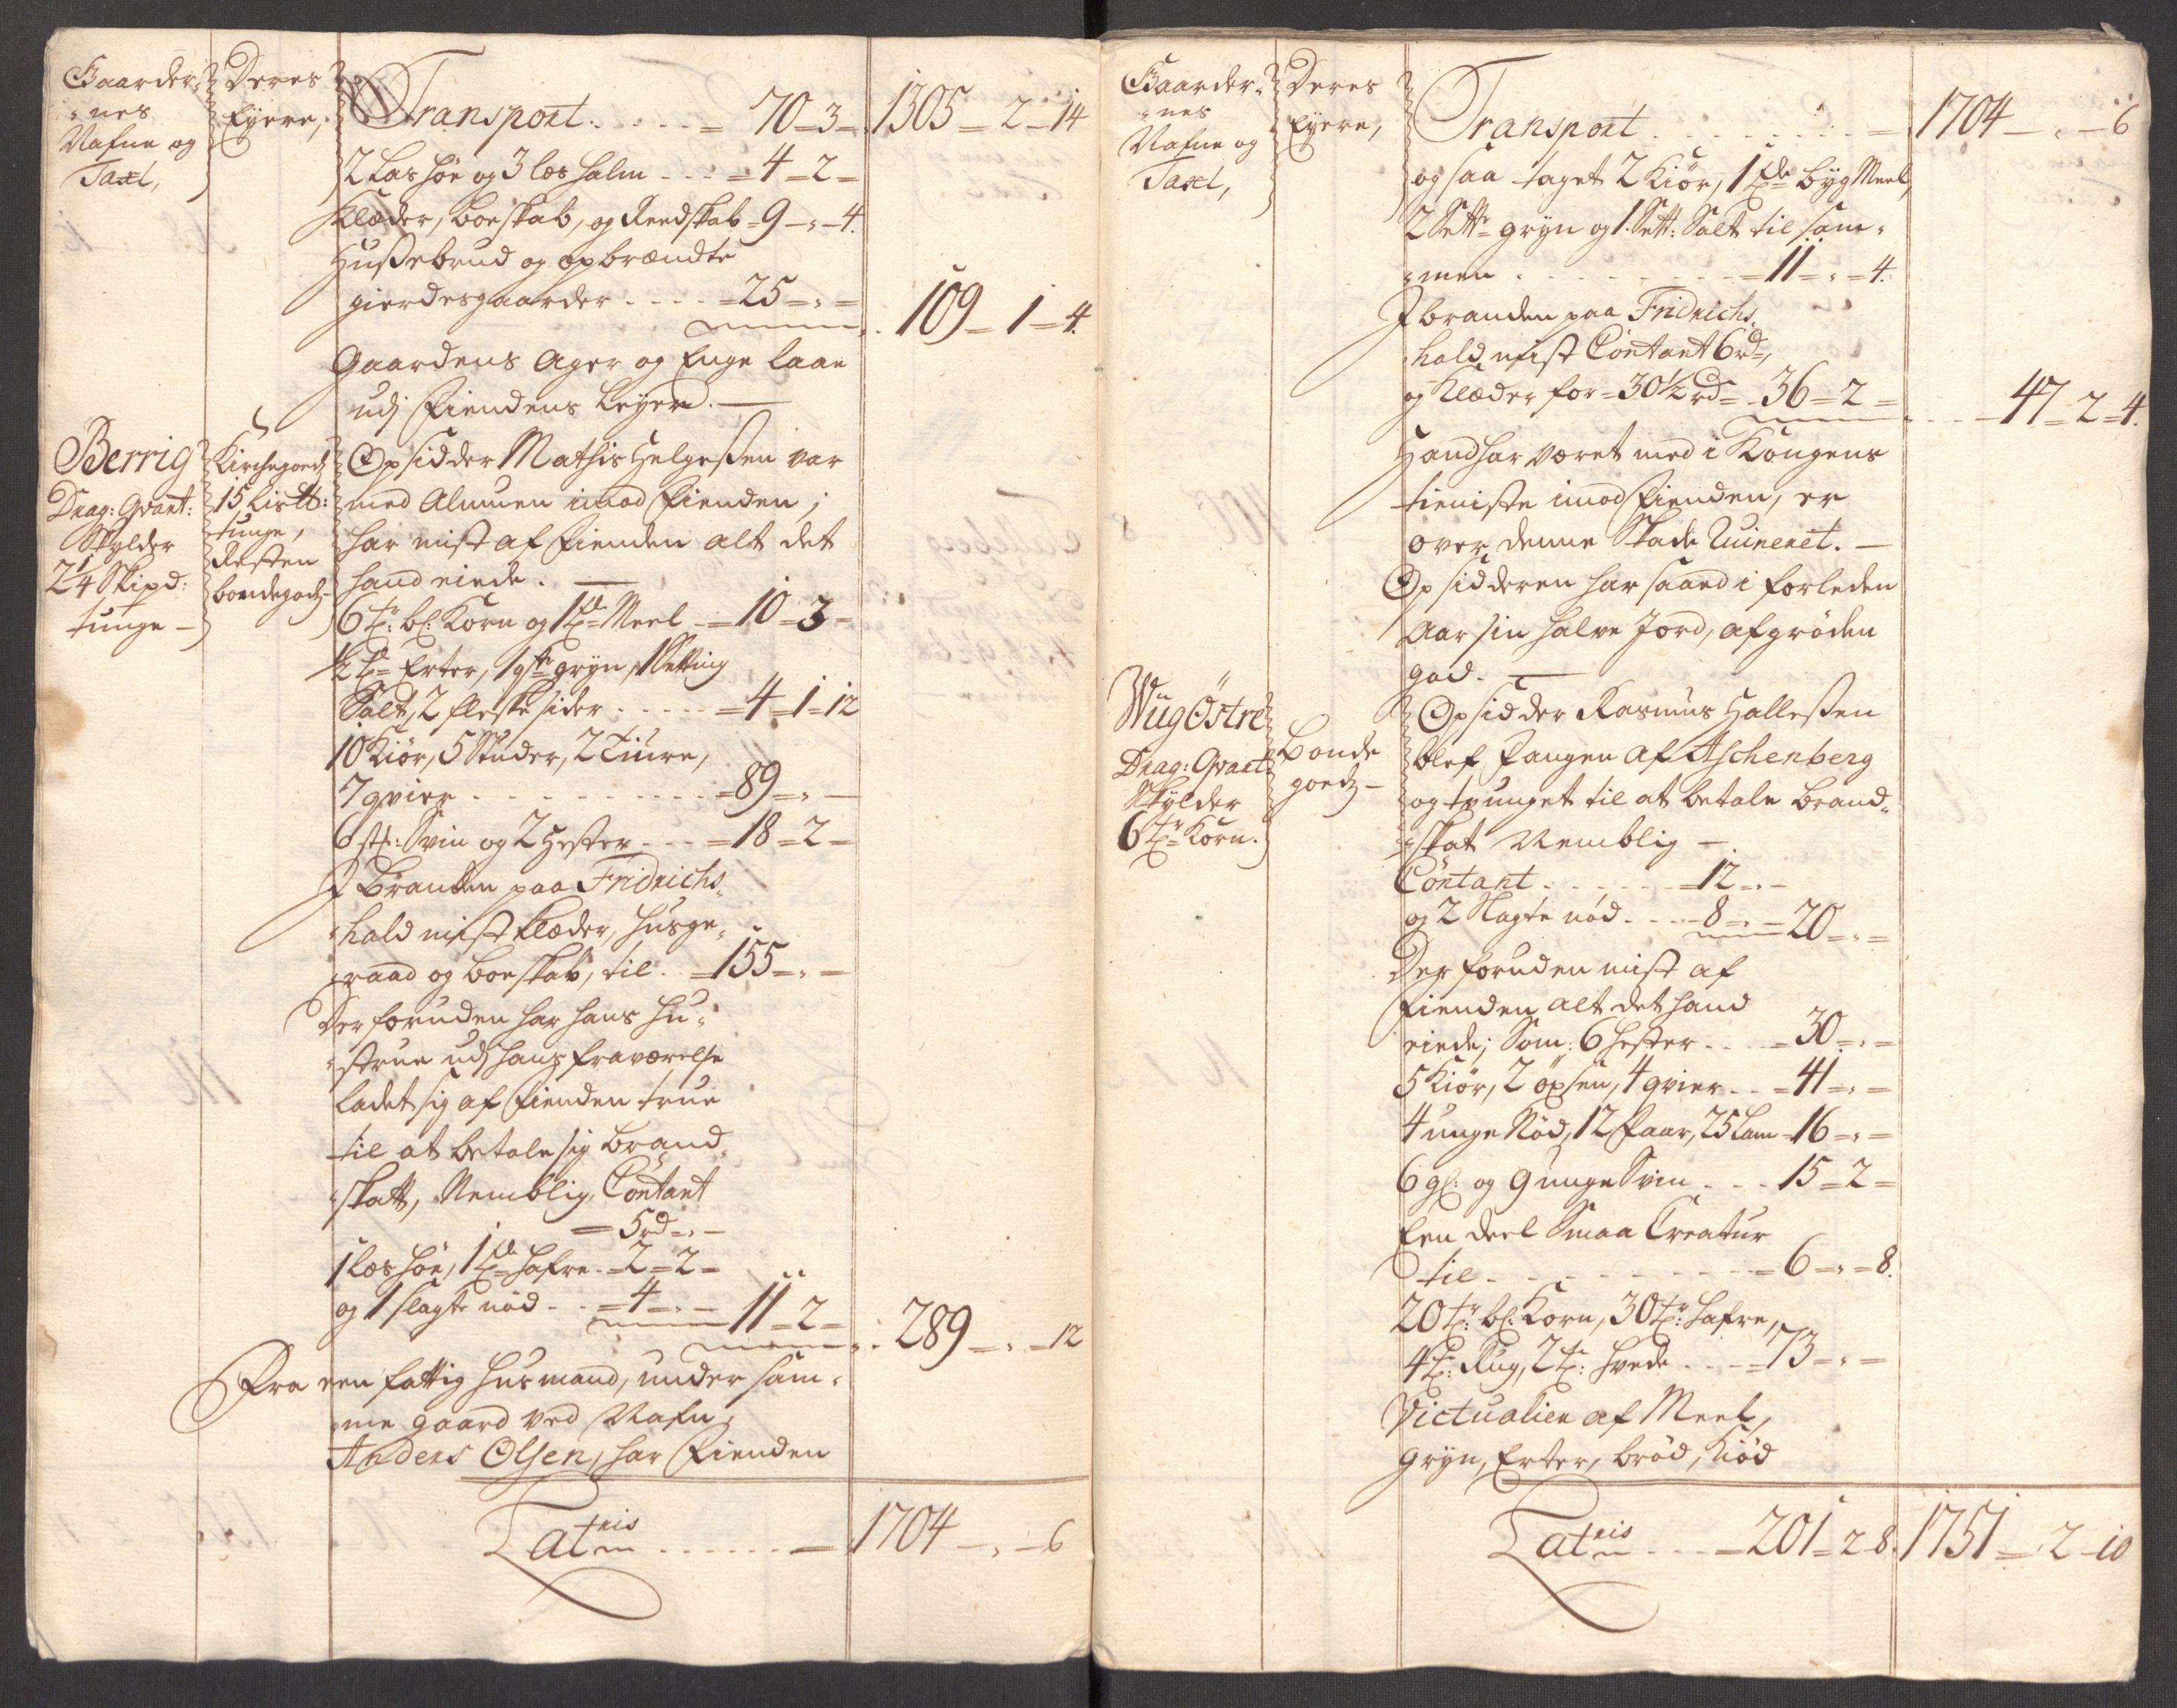 Gaarder-
nes
Nafne og
Taxt,
Deres
Eyere,
Transport. . . . . = 70 = 3 = 1305 = 2 = 14
2 Las höe og 3 læs halm - - - = 4 = 2 =
Klæder, boeskab, og Reedskab = 9 - " - 4.
Hußebrud og opbrændte
gierdesgaarder . . . . = 25 = " = 109 = 1 = 4.
Gaardens Ager og Enge laae
udj Fiendens Leyer. —
Berrig
Drag: Qvart:
Skylder
2¼ Skipd:
tunge —
Kirchegoedz
15 Lis℔:
tunge,
Resten
bondegodz
Opsidder Mathis Helgeßen var
med Almuen imod Fienden;
har mist af Fienden alt det
hand eiede. —
6 tr: bl: Korn og 1 td Meel - = 10 = 3 =
½ td Erter, 1 qtr gryn, 1 Setting
Salt, 2 fleske sider . . . . . = 4 = 1 = 12
10 Kiör, 5 Studer, 2 Tiure,
7 qvier . . . . . . . . . . = 89 = " =
6 st: Svin og 2 Hester . . . = 18 = 2 =
I Branden paa Fridrichs-
hald mist Klæder, Husge-
raad og Boeskab, til . . = 155 = " =
Der foruden har hans Hu-
strue udj hans fraværelse
ladet sig af Fienden true
til at betale sig Brand-
skatt, Nemblig, Contant
= 5 rd = " =
1 læs höe, 1 td hafre - = 2 = 2 =
og 1 slagte nöd - - = 4 = " = 11 = 2 = 289 = " = 12
Fra een fattig Huusmand, under sam-
me gaard ved Nafn
Anders Olsen, har Fienden
Lateris . . . . . . = 1704 = " = 6
Gaarder-
nes
Nafne og
Taxt,
Deres
Eyere,
Transport . . . . . . . . = 1704 = " = 6
og saa taget 2 Kiör, 1 tde byg Meel,
2 Settr gryn og 1 Sett: Salt til sam-
men . . . . . . . . . . = 11 = " = 4.
I branden paa Fridrichs-
hald mist Contant 6 rd,
og Klæder for = 30½ rd = 36 = 2 = 47 = 2 = 4.
Hand har været med i Kongens
tieniste imod Fienden, er
over denne Skade Ruineret. —
Opsidderen har saaed i forleden
Aar sin halve Jord, afgröden
god. —
Wiig Östre
Drag: Qvart:
Skylder
6 tr Korn.
Bonde
goedz —
Opsidder Rasmus Halleßen
blef Fangen af Aschenberg
og tvunget til at betale Brand-
skat Nemblig —
Contant . . . . . . = 12 = " =
og 2 Slagte nöd . . . = 8 = " = 20 = " =
Der foruden mist af
Fienden alt det hand
eiede; Som: 6 Hester . . . = 30 = " =
5 Kiör, 2 öxsen, 4 qvier . . = 41 = " =
4 unge Nöd, 12 Faar, 25 Lam = 16 = " =
6 gl: og 9 unge Svin . . . = 15 = 2 =
Een deel Smaa Creatur
til . . . . . . . . . . . = 6 = " = 8.
20 tr: bl: Korn, 30 tr: hafre,
4 tr: Rug, 2 tr: Hvede . . . = 73 = " =
Victualier af Meel,
gryn, Erter, bröd, Kiöd
Lateris . . . = 201 = 2 = 8. 1751 = 2 = 10